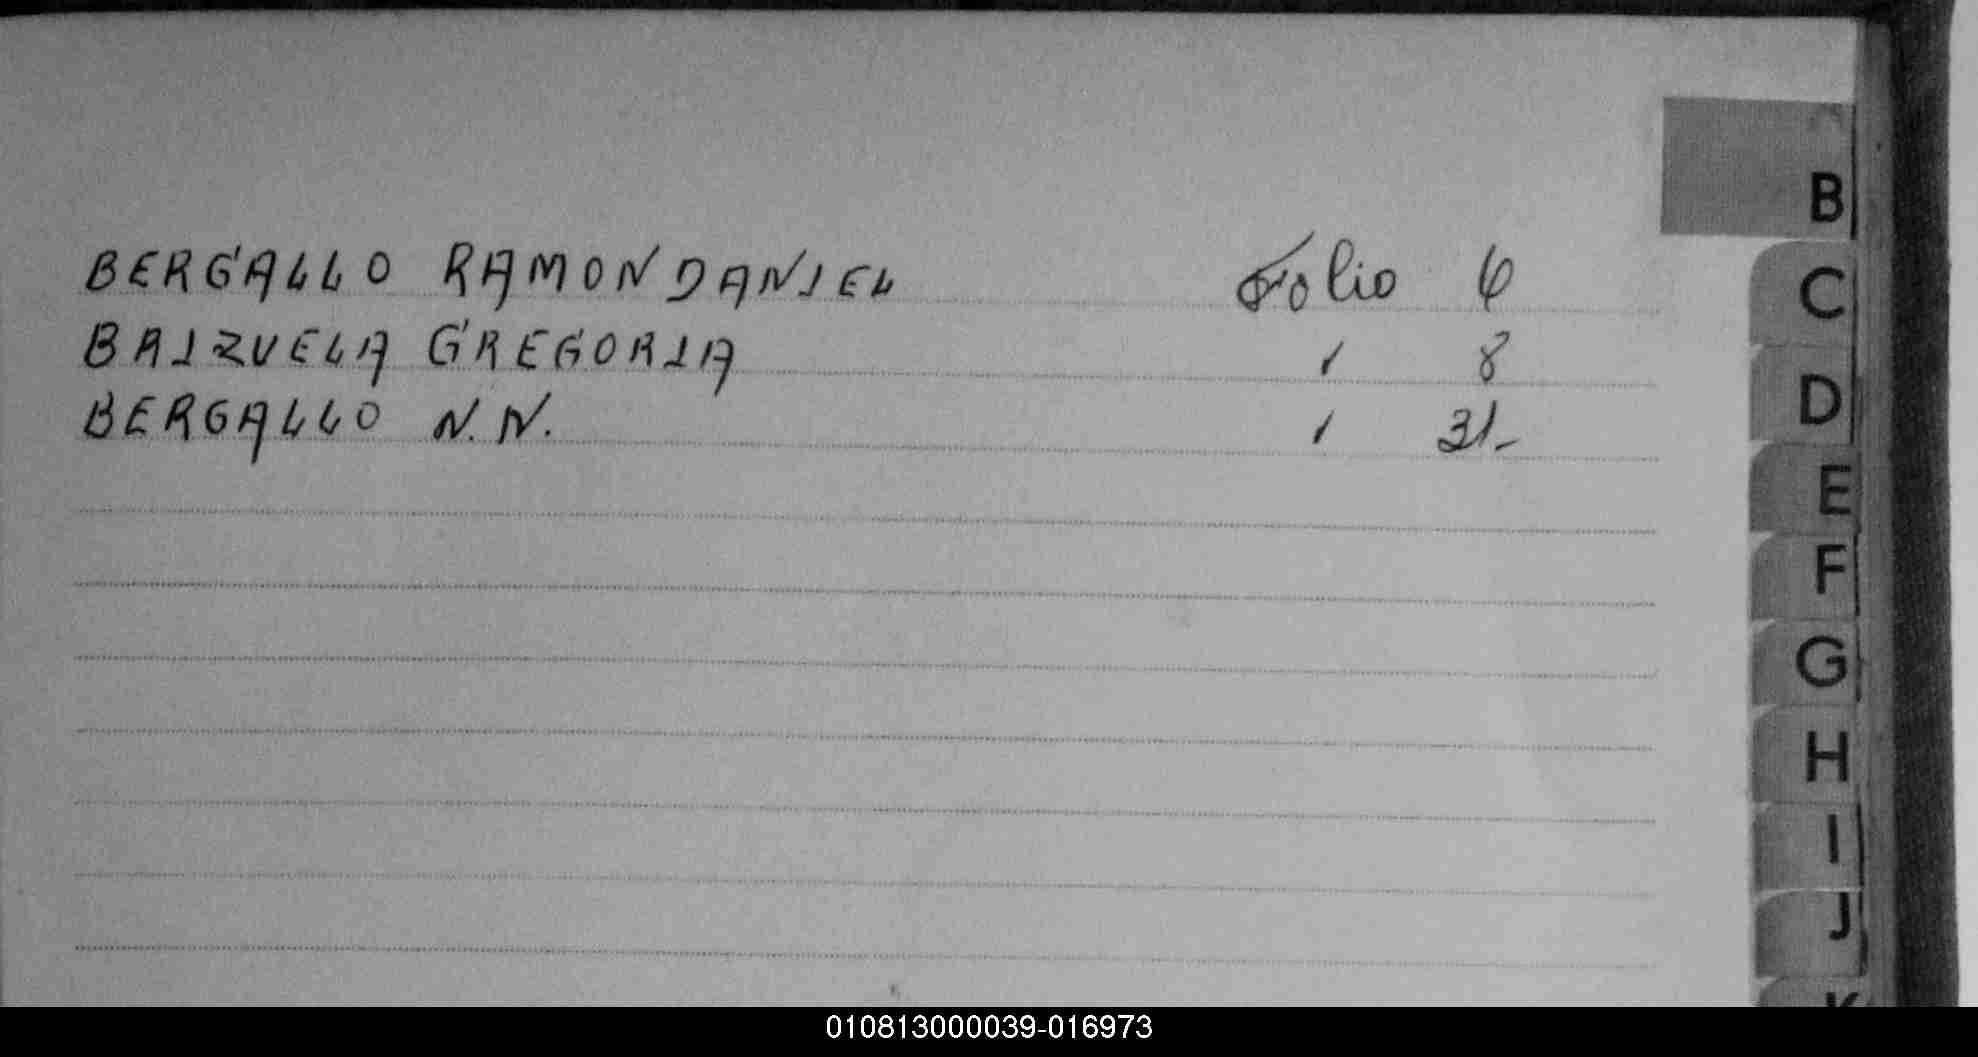 B
BERGALLO RAMON DANIEL Folio 6
C
BAIZUELA GREGORIA 8
D
BERGALLO N.N. 31-
E
F
G
H
I
J
K
010813000039-016973